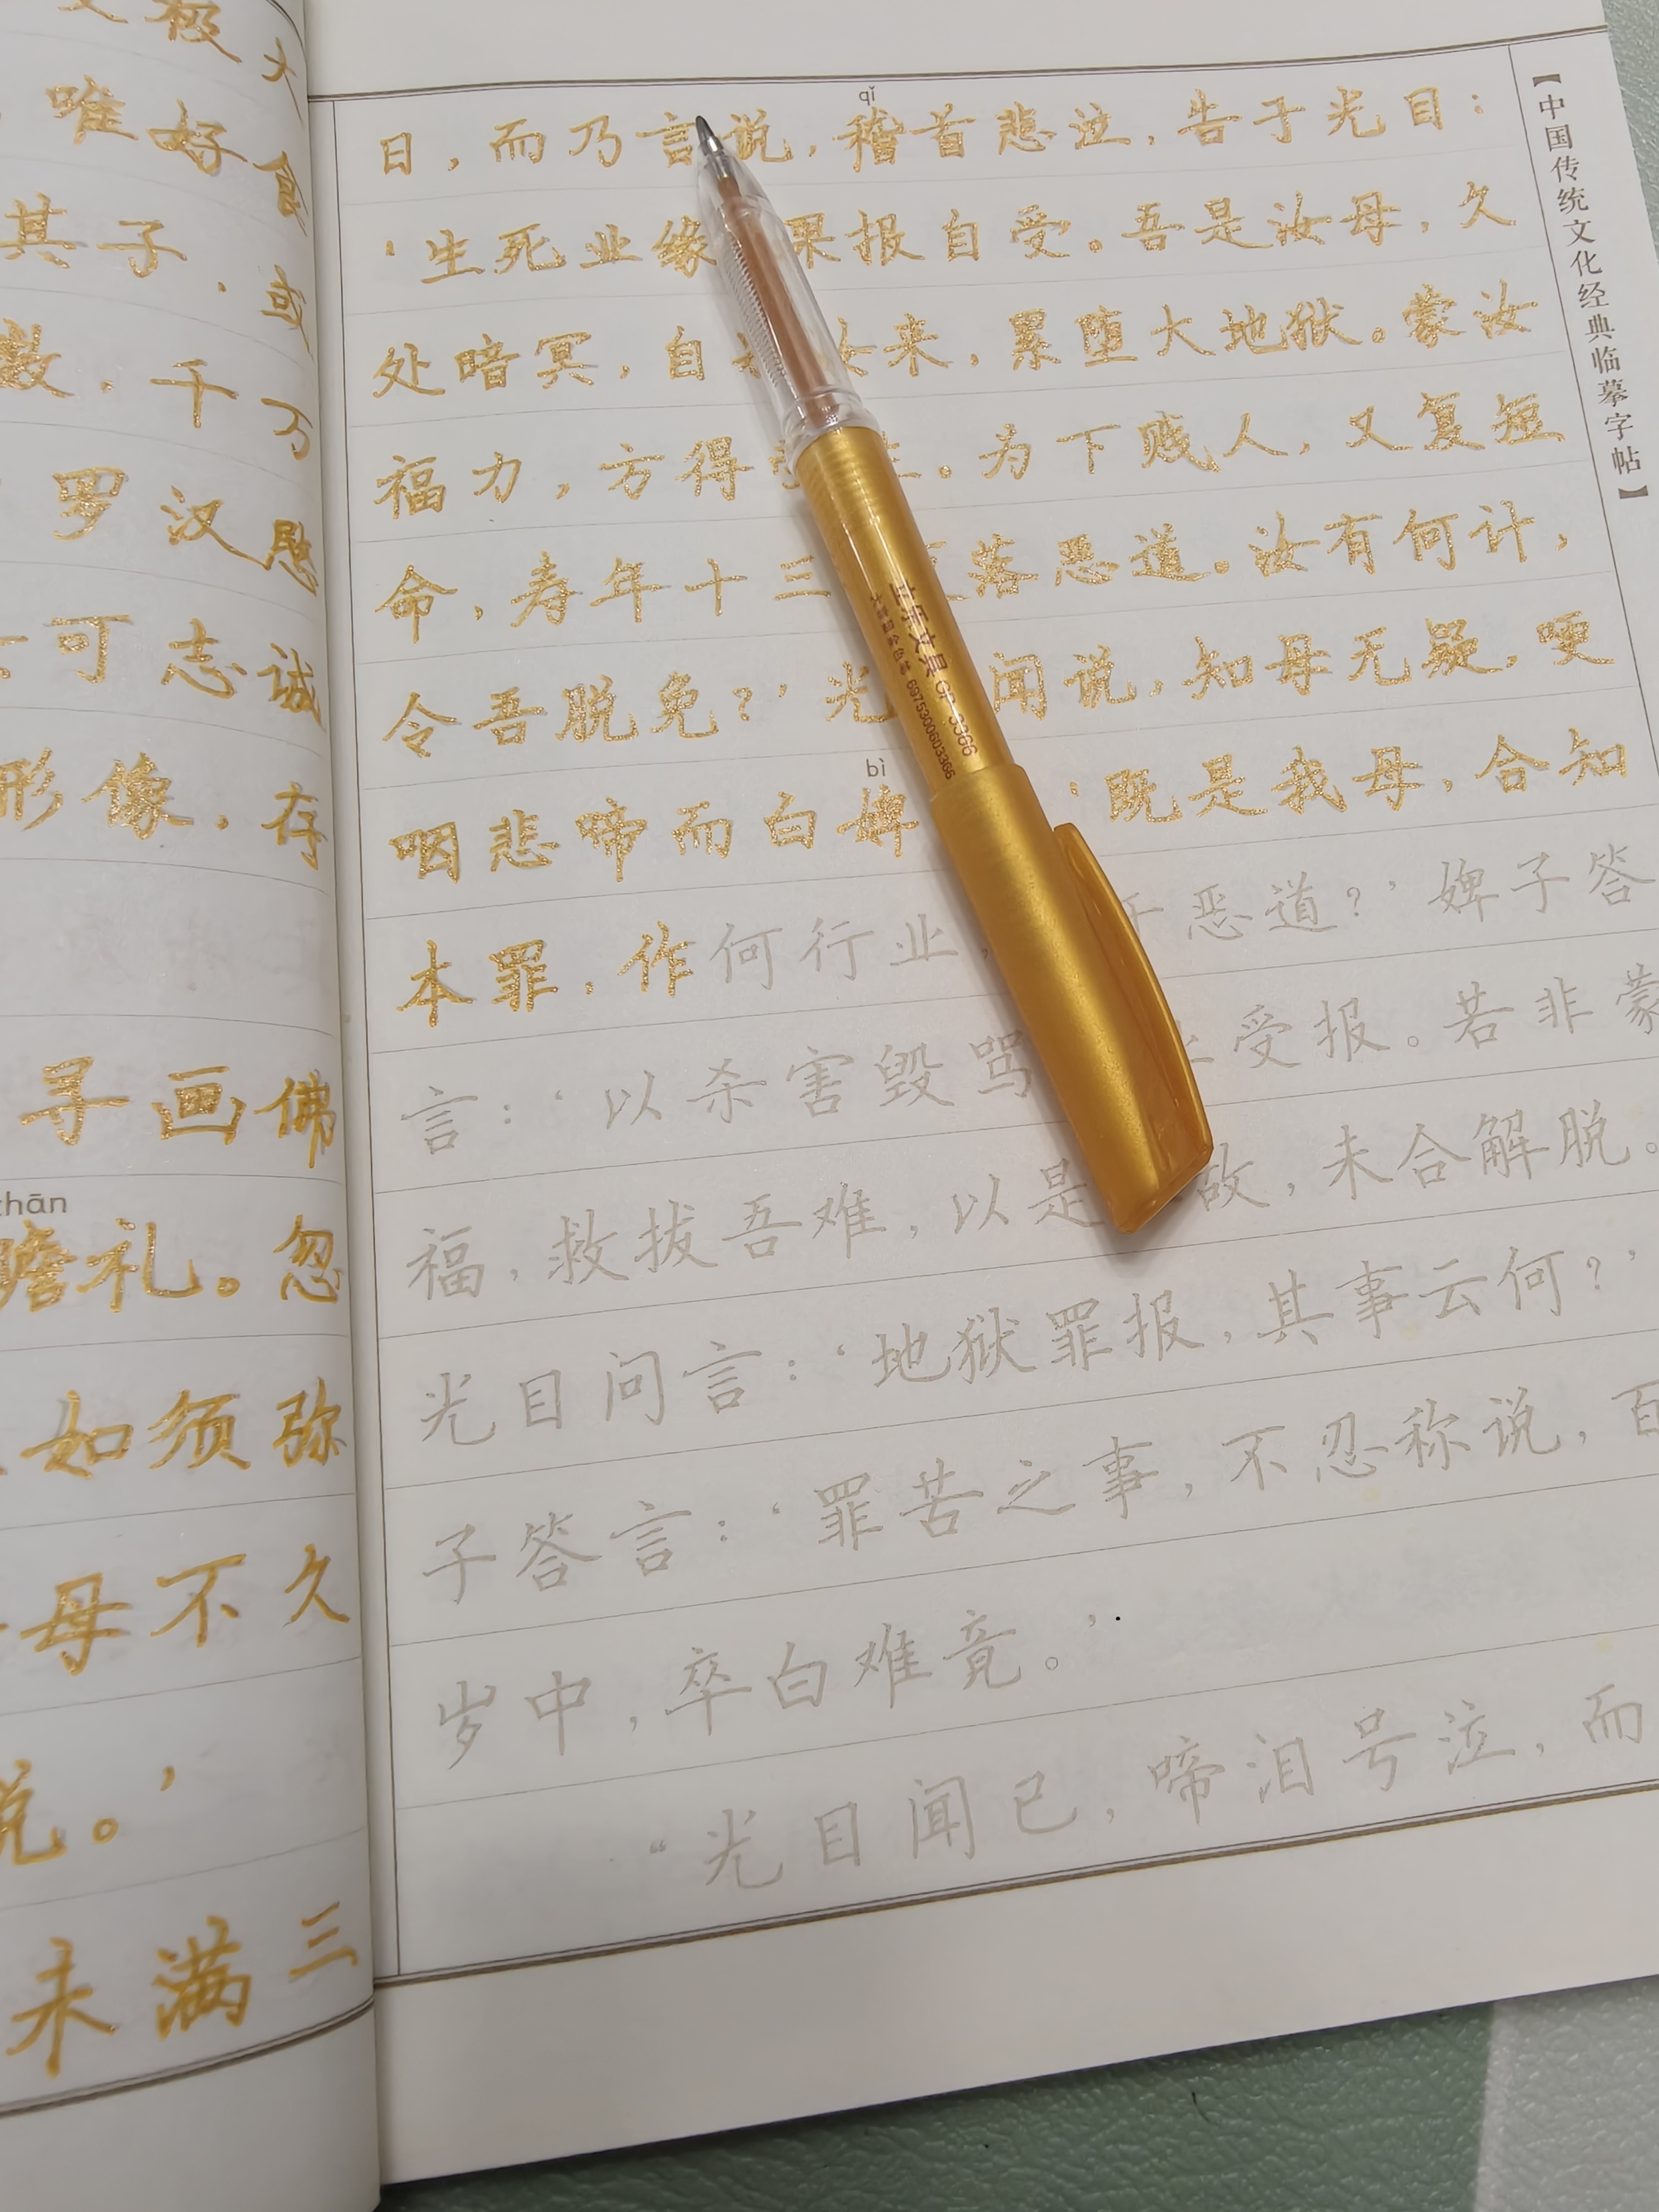 大
极
食
唯好
或
其子.
万
数.千
愿
罗汉
诚
可志
存
形像.
佛
寻画
zhān
忽
瞻礼。
弥
如须
久
母不
说。’
三
未满
qǐ
日,而乃言说,稽首悲泣,告于光目:
‘生死业缘 果报自受。吾是汝母,久
处暗冥,自 汝来,累堕大地狱。蒙汝
福力,方得 生。为下贱人,又复短
命,寿年十三 落恶道。汝有何计,
令吾脱免?’光 闻说,知母无疑,哽
bì
咽悲啼而白婢 ‘既是我母,合知
本罪,作何行业, 于恶道?’婢子答
言:‘以杀害毁骂 受报。若非蒙
福,救拔吾难,以是 故,未合解脱。
光目问言:‘地狱罪报,其事云何?’
子答言:‘罪苦之事,不忍称说,百
岁中,卒白难竟。’
“光目闻已,啼泪号泣,而
【中国传统文化经典临摹字帖】
文具 GP-3366
6975300603366